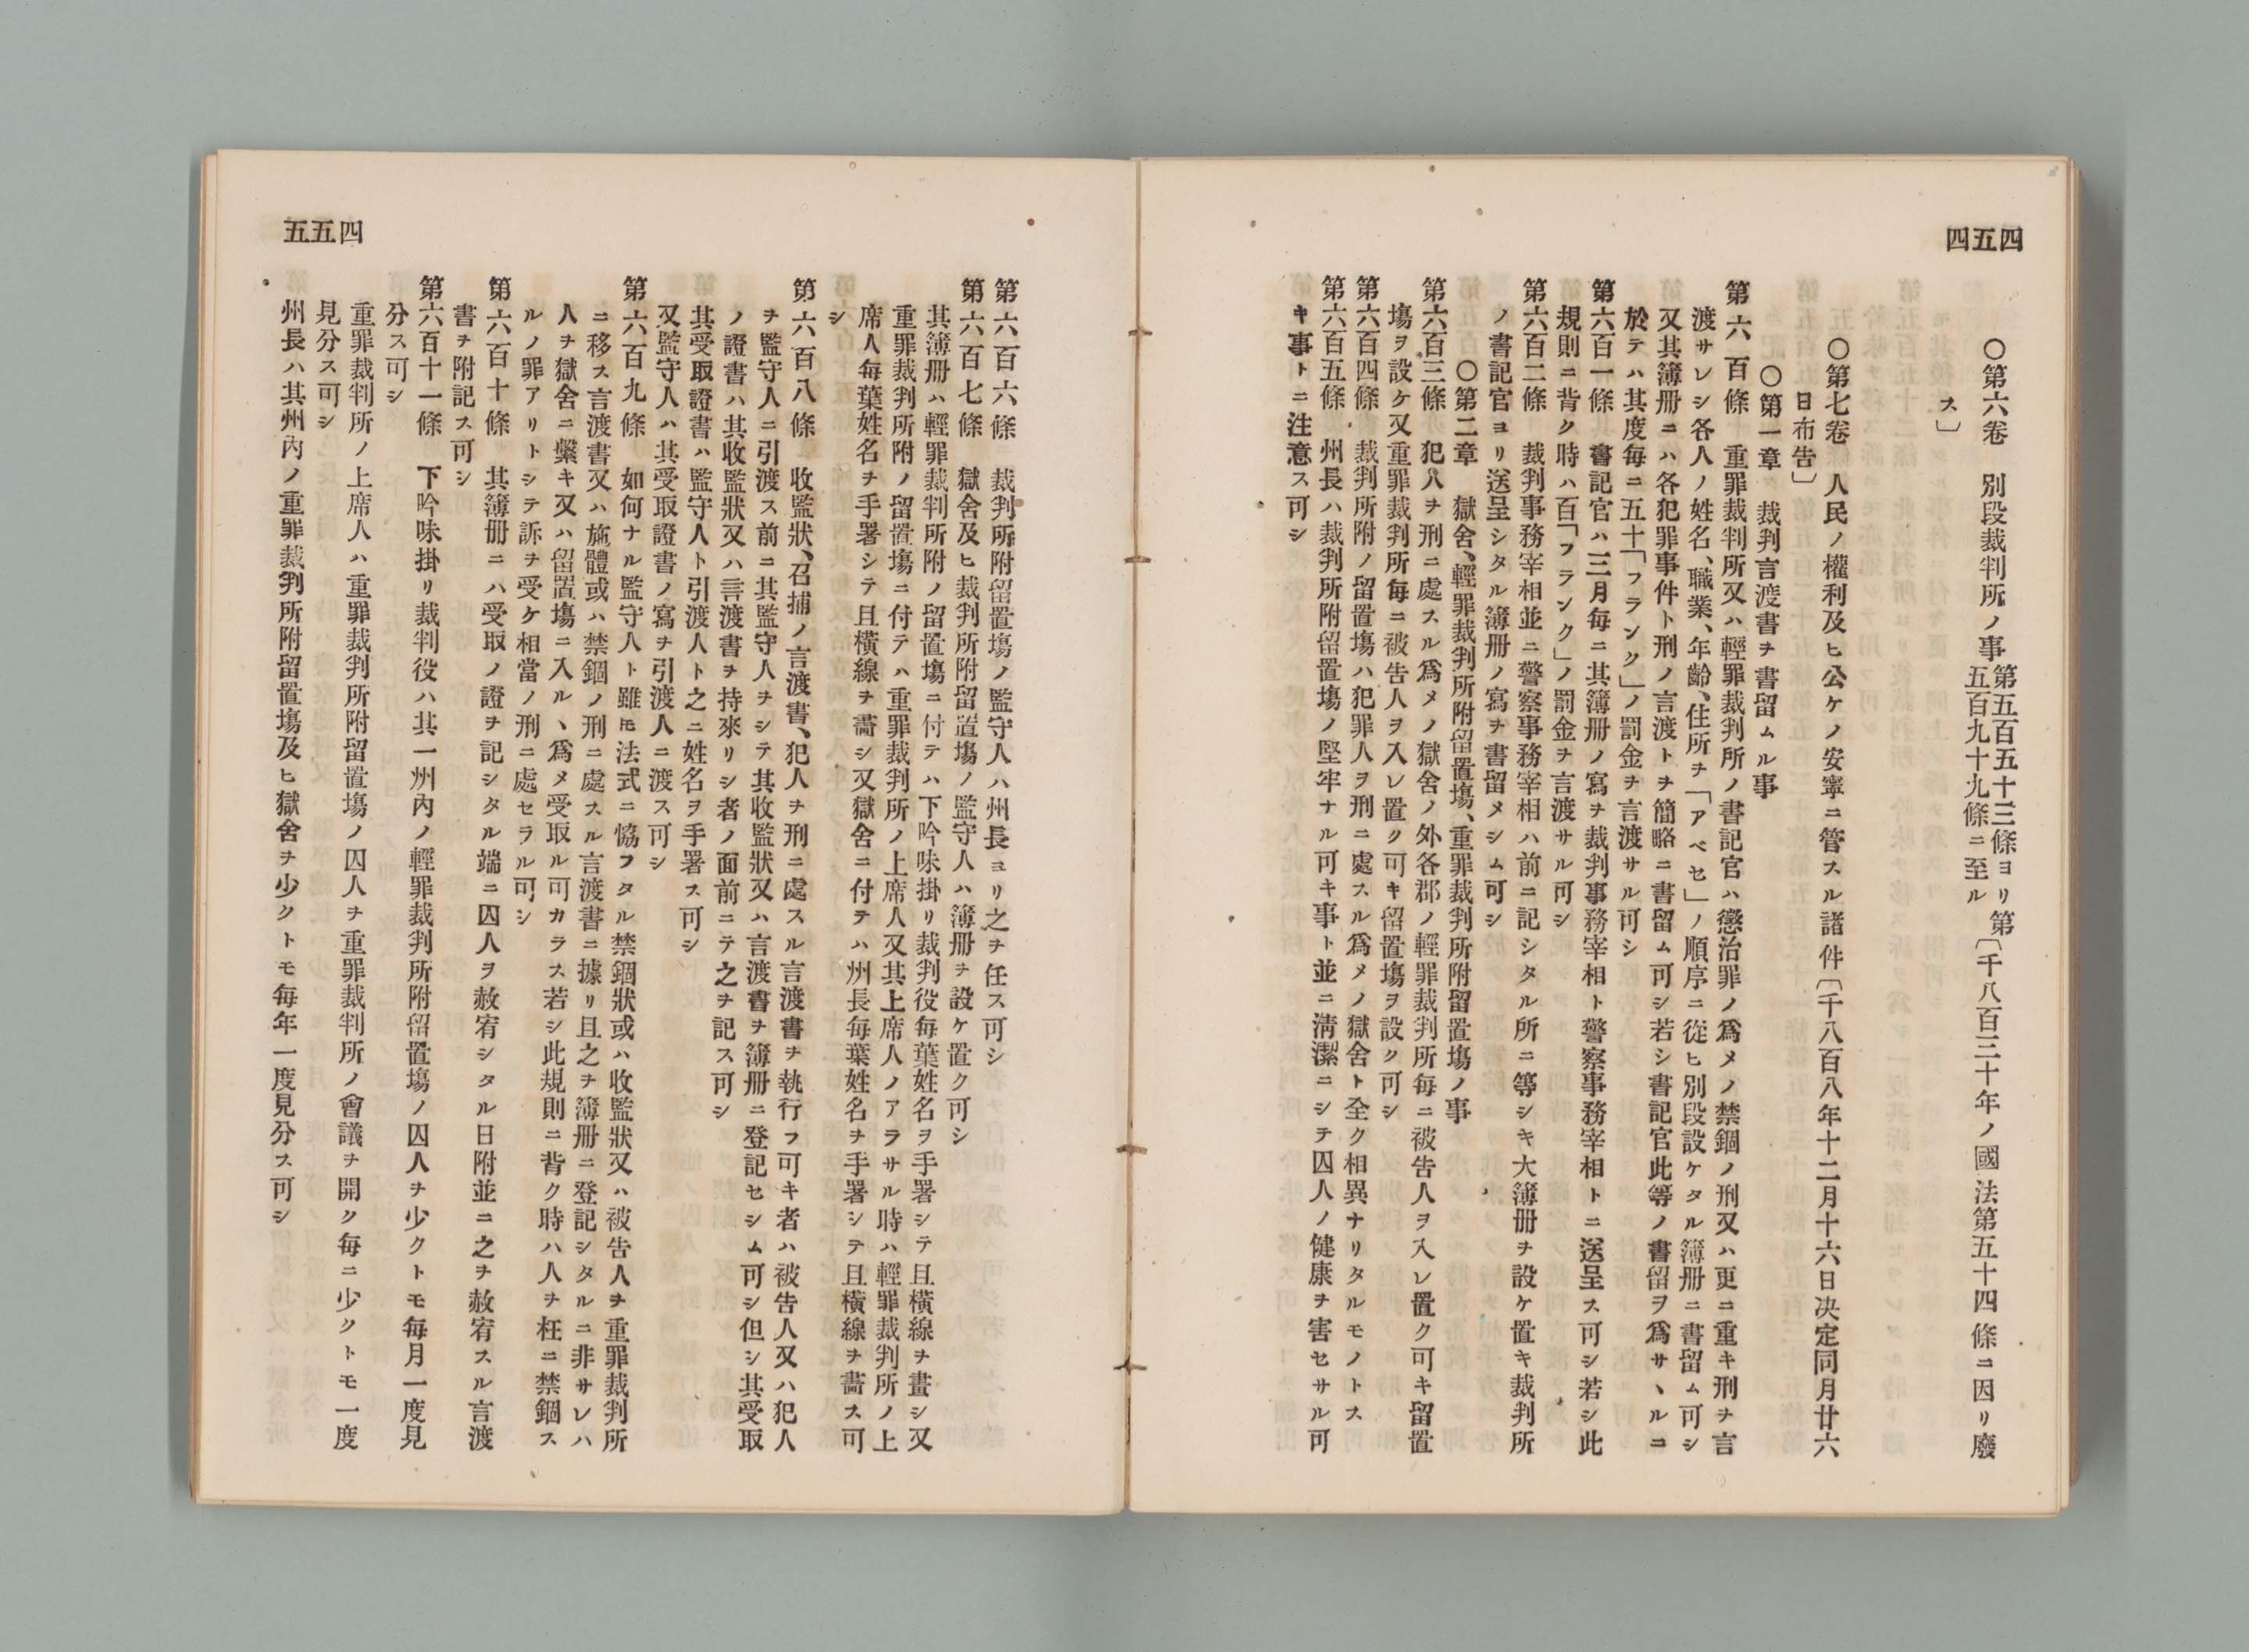 四五四
○第六卷　別段裁判所ノ事第五百五十三條ヨリ第五百九十九條ニ至ル〔千八百三十年ノ國法第五十四條ニ因リ廢
ス〕
○第七卷　人民ノ權利及ヒ公ケノ安寧ニ管スル諸件〔千八百八年十二月十六日决定同月廿六
日布告〕
○第一章　裁判言渡書ヲ書留ムル事
第六百條　重罪裁判所又ハ輕罪裁判所ノ書記官ハ懲治罪ノ爲メノ禁錮ノ刑又ハ更ニ重キ刑ヲ言
渡サレシ各人ノ姓名、職業、年齡、住所ヲ「アベセ」ノ順序ニ從ヒ別段設ケタル簿册ニ書留ム可シ
又其簿册ニハ各犯罪事件ト刑ノ言渡トヲ簡略ニ書留ム可シ若シ書記官此等ノ書留ヲ爲サヽルニ
於テハ其度毎ニ五十「フランク」ノ罰金ヲ言渡サル可シ
第六百一條　書記官ハ三月毎ニ其簿册ノ寫ヲ裁判事務宰相ト警察事務宰相トニ送呈ス可シ若シ此
規則ニ背ク時ハ百「フランク」ノ罰金ヲ言渡サル可シ
第六百二條　裁判事務宰相並ニ警察事務宰相ハ前ニ記シタル所ニ等シキ大簿册ヲ設ケ置キ裁判所
ノ書記官ヨリ送呈シタル簿册ノ寫ヲ書留メシム可シ
○第二章　獄舍、輕罪裁判所附留置塲、重罪裁判所附留置塲ノ事
第六百三條　犯人ヲ刑ニ處スル爲メノ獄舍ノ外各郡ノ輕罪裁判所毎ニ被告人ヲ入レ置ク可キ留置
塲ヲ設ケ又重罪裁判所毎ニ被告人ヲ入レ置ク可キ留置塲ヲ設ク可シ
第六百四條　裁判所附ノ留置塲ハ犯罪人ヲ刑ニ處スル爲メノ獄舍ト全ク相異ナリタルモノトス
第六百五條　州長ハ裁判所附留置塲ノ堅牢ナル可キ事ト並ニ淸潔ニシテ囚人ノ健康ヲ害セサル可
キ事トニ注意ス可シ
四五五
第六百六條　裁判所附留置塲ノ監守人ハ州長ヨリ之ヲ任ス可シ
第六百七條　獄舍及ヒ裁判所附留置塲ノ監守人ハ簿册ヲ設ケ置ク可シ
其簿册ハ輕罪裁判所附ノ留置塲ニ付テハ下吟味掛リ裁判役毎葉姓名ヲ手署シテ且橫線ヲ畫シ又
重罪裁判所附ノ留置塲ニ付テハ重罪裁判所ノ上席人又其上席人ノアラサル時ハ輕罪裁判所ノ上
席人毎葉姓名ヲ手署シテ且橫線ヲ畵シ又獄舍ニ付テハ州長毎葉姓名ヲ手署シテ且橫線ヲ畵ス可
シ
第六百八條　收監狀、召捕ノ言渡書、犯人ヲ刑ニ處スル言渡書ヲ執行フ可キ者ハ被告人又ハ犯人
ヲ監守人ニ引渡ス前ニ其監守人ヲシテ其收監狀又ハ言渡書ヲ簿册ニ登記セシム可シ但シ其受取
ノ證書ハ其收監狀又ハ言渡書ヲ持來リシ者ノ面前ニテ之ヲ記ス可シ
其受取證書ハ監守人ト引渡人ト之ニ姓名ヲ手署ス可シ
又監守人ハ其受取證書ノ寫ヲ引渡人ニ渡ス可シ
第六百九條　如何ナル監守人ト雖モ法式ニ恊フタル禁錮狀或ハ收監狀又ハ被告人ヲ重罪裁判所
ニ移ス言渡書又ハ施體或ハ禁錮ノ刑ニ處スル言渡書ニ據リ且之ヲ簿册ニ登記シタルニ非サレハ
人ヲ獄舍ニ繫キ又ハ留置塲ニ入ルヽ爲メ受取ル可カラス若シ此規則ニ背ク時ハ人ヲ枉ニ禁錮ス
ルノ罪アリトシテ訴ヲ受ケ相當ノ刑ニ處セラル可シ
第六百十條　其簿册ニハ受取ノ證ヲ記シタル端ニ囚人ヲ赦宥シタル日附並ニ之ヲ赦宥スル言渡
書ヲ附記ス可シ
第六百十一條　下吟味掛リ裁判役ハ其一州內ノ輕罪裁判所附留置塲ノ囚人ヲ少クトモ毎月一度見
分ス可シ
重罪裁判所ノ上席人ハ重罪裁判所附留置塲ノ囚人ヲ重罪裁判所ノ會議ヲ開ク毎ニ少クトモ一度
見分ス可シ
州長ハ其州內ノ重罪裁判所附留置塲及ヒ獄舍ヲ少クトモ毎年一度見分ス可シ